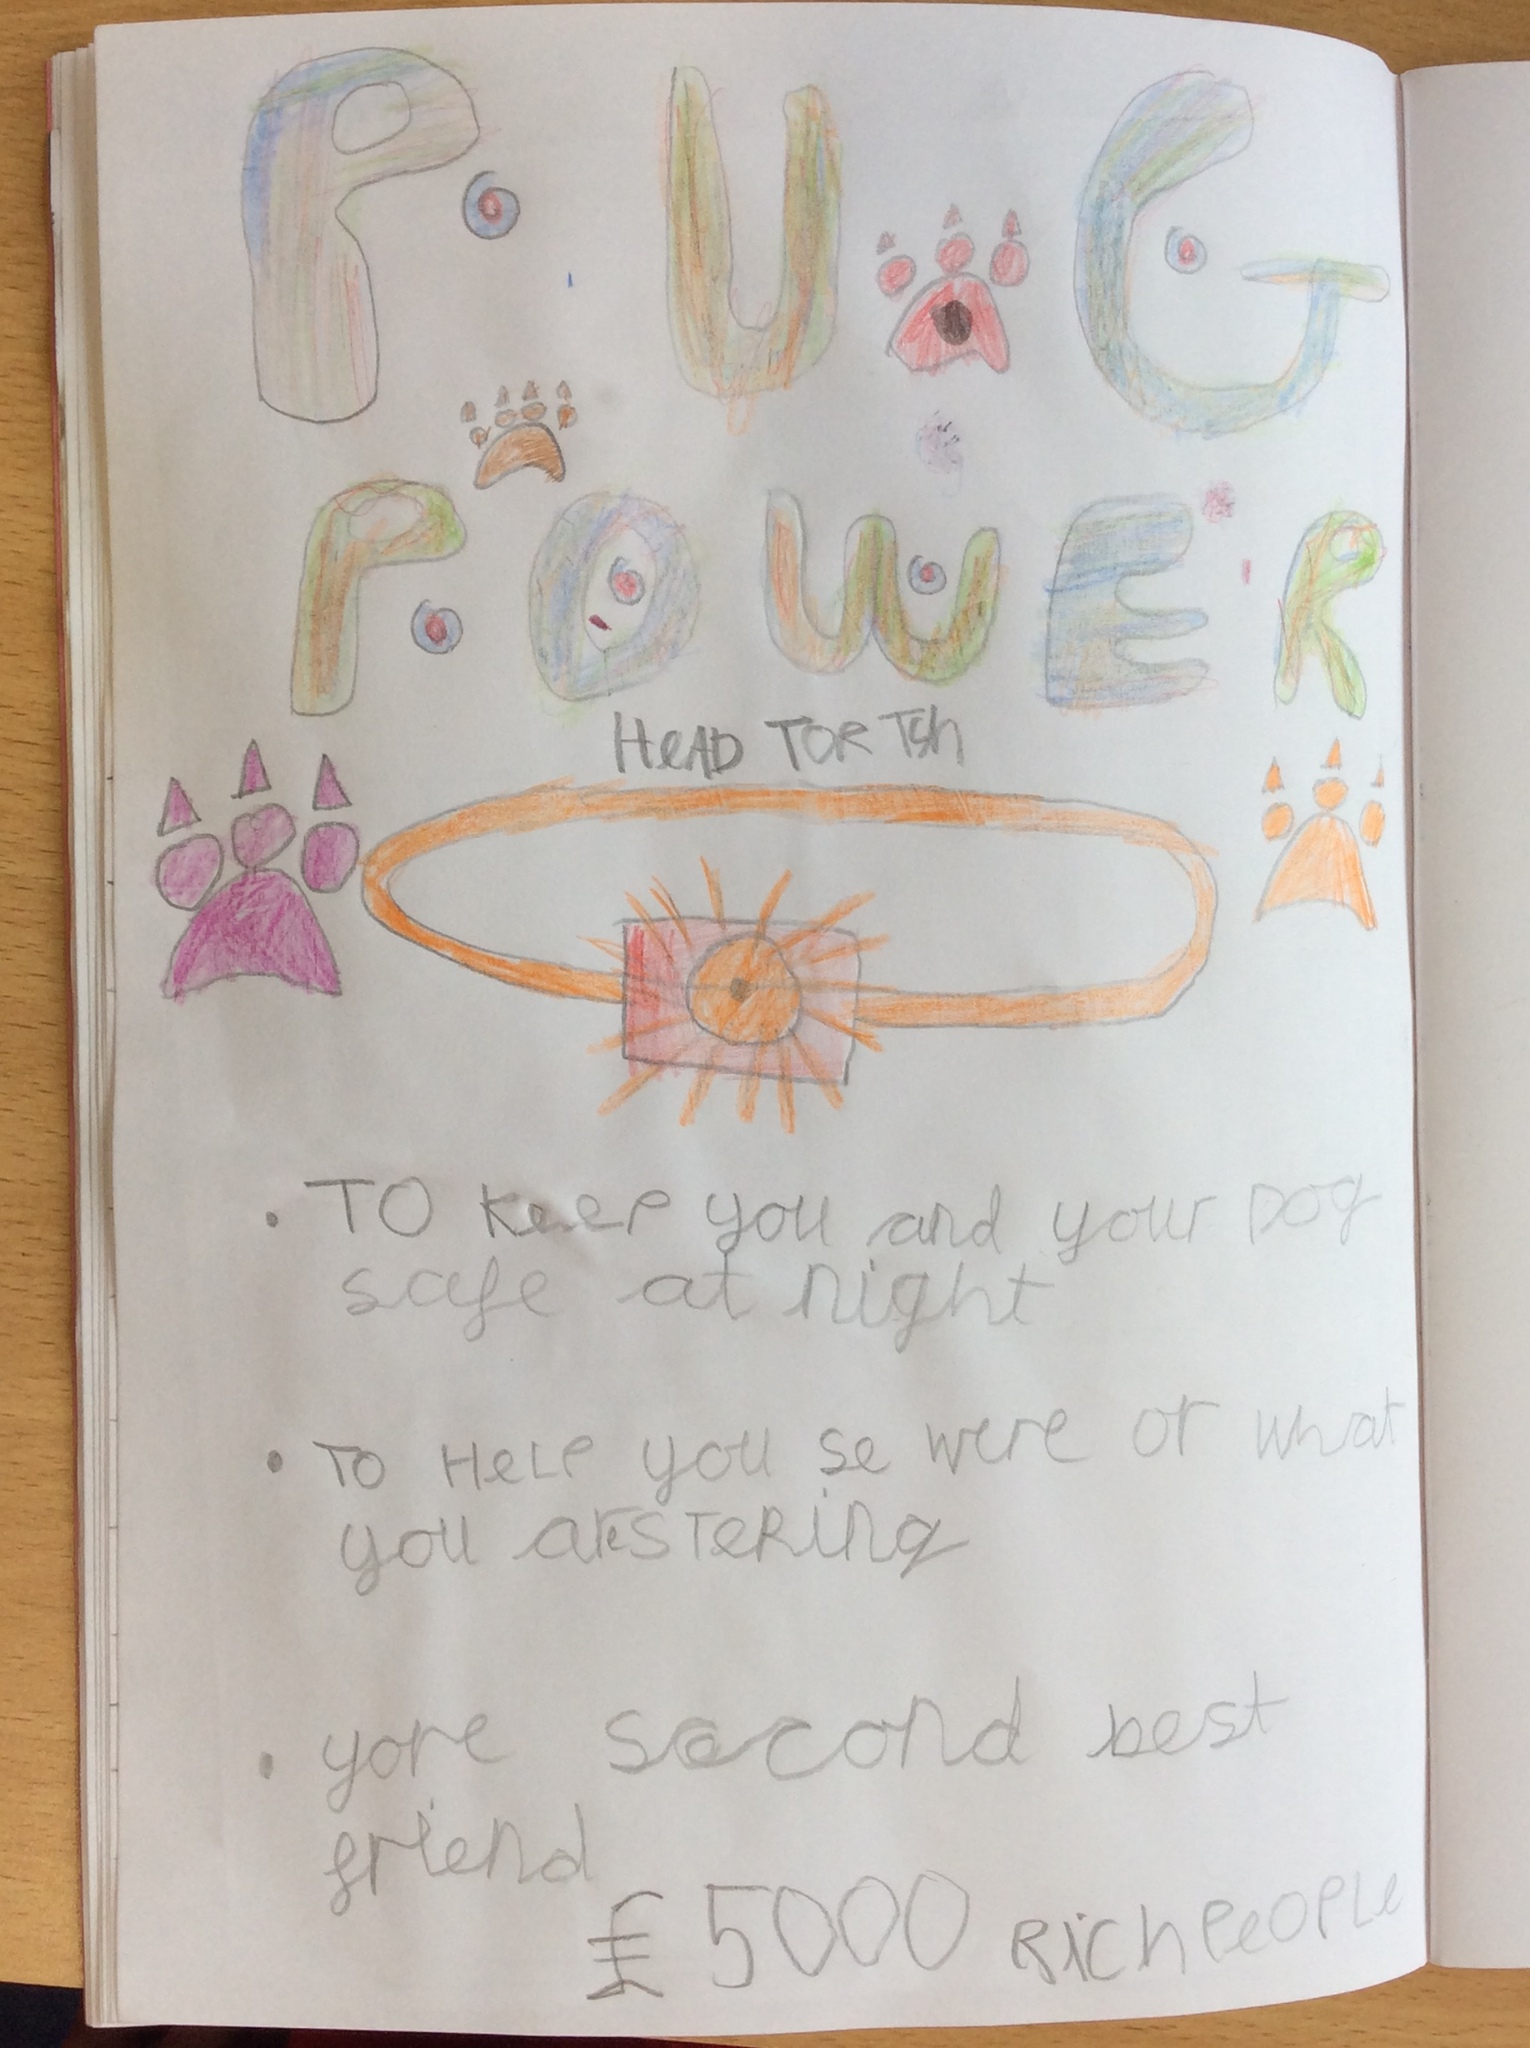 PUG
POWER
HeAD TORTSh
• TO Keep you and your DOg
safe at night
• TO HeLP you se were or what
you areSTeRing
• yore second best
friend
£ 5000 RichPeOPLe